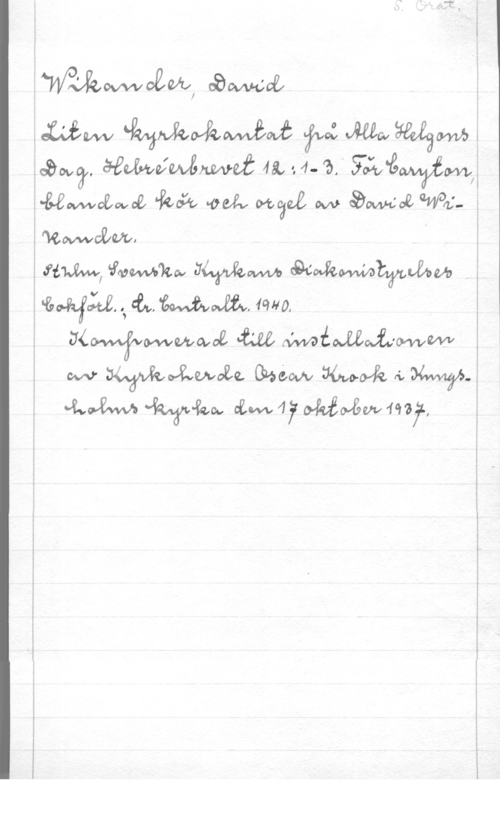 S. Orat.
Wikander, David
Liten kyrkokantat på Alla Helgons
Dag. Hebréerbrevet 12:1-3. För baryton,
blandad kör och orgel av David Wi-
kander.
Sthlm, Svenska Kyrkans Diakonistyrelses
bokförl.; tr. Centraltr. 1940.
Komponerad till installationen
av Kyrkoherde Oscar Krook i Kungs-
holms kyrka den 17 oktober 1937.